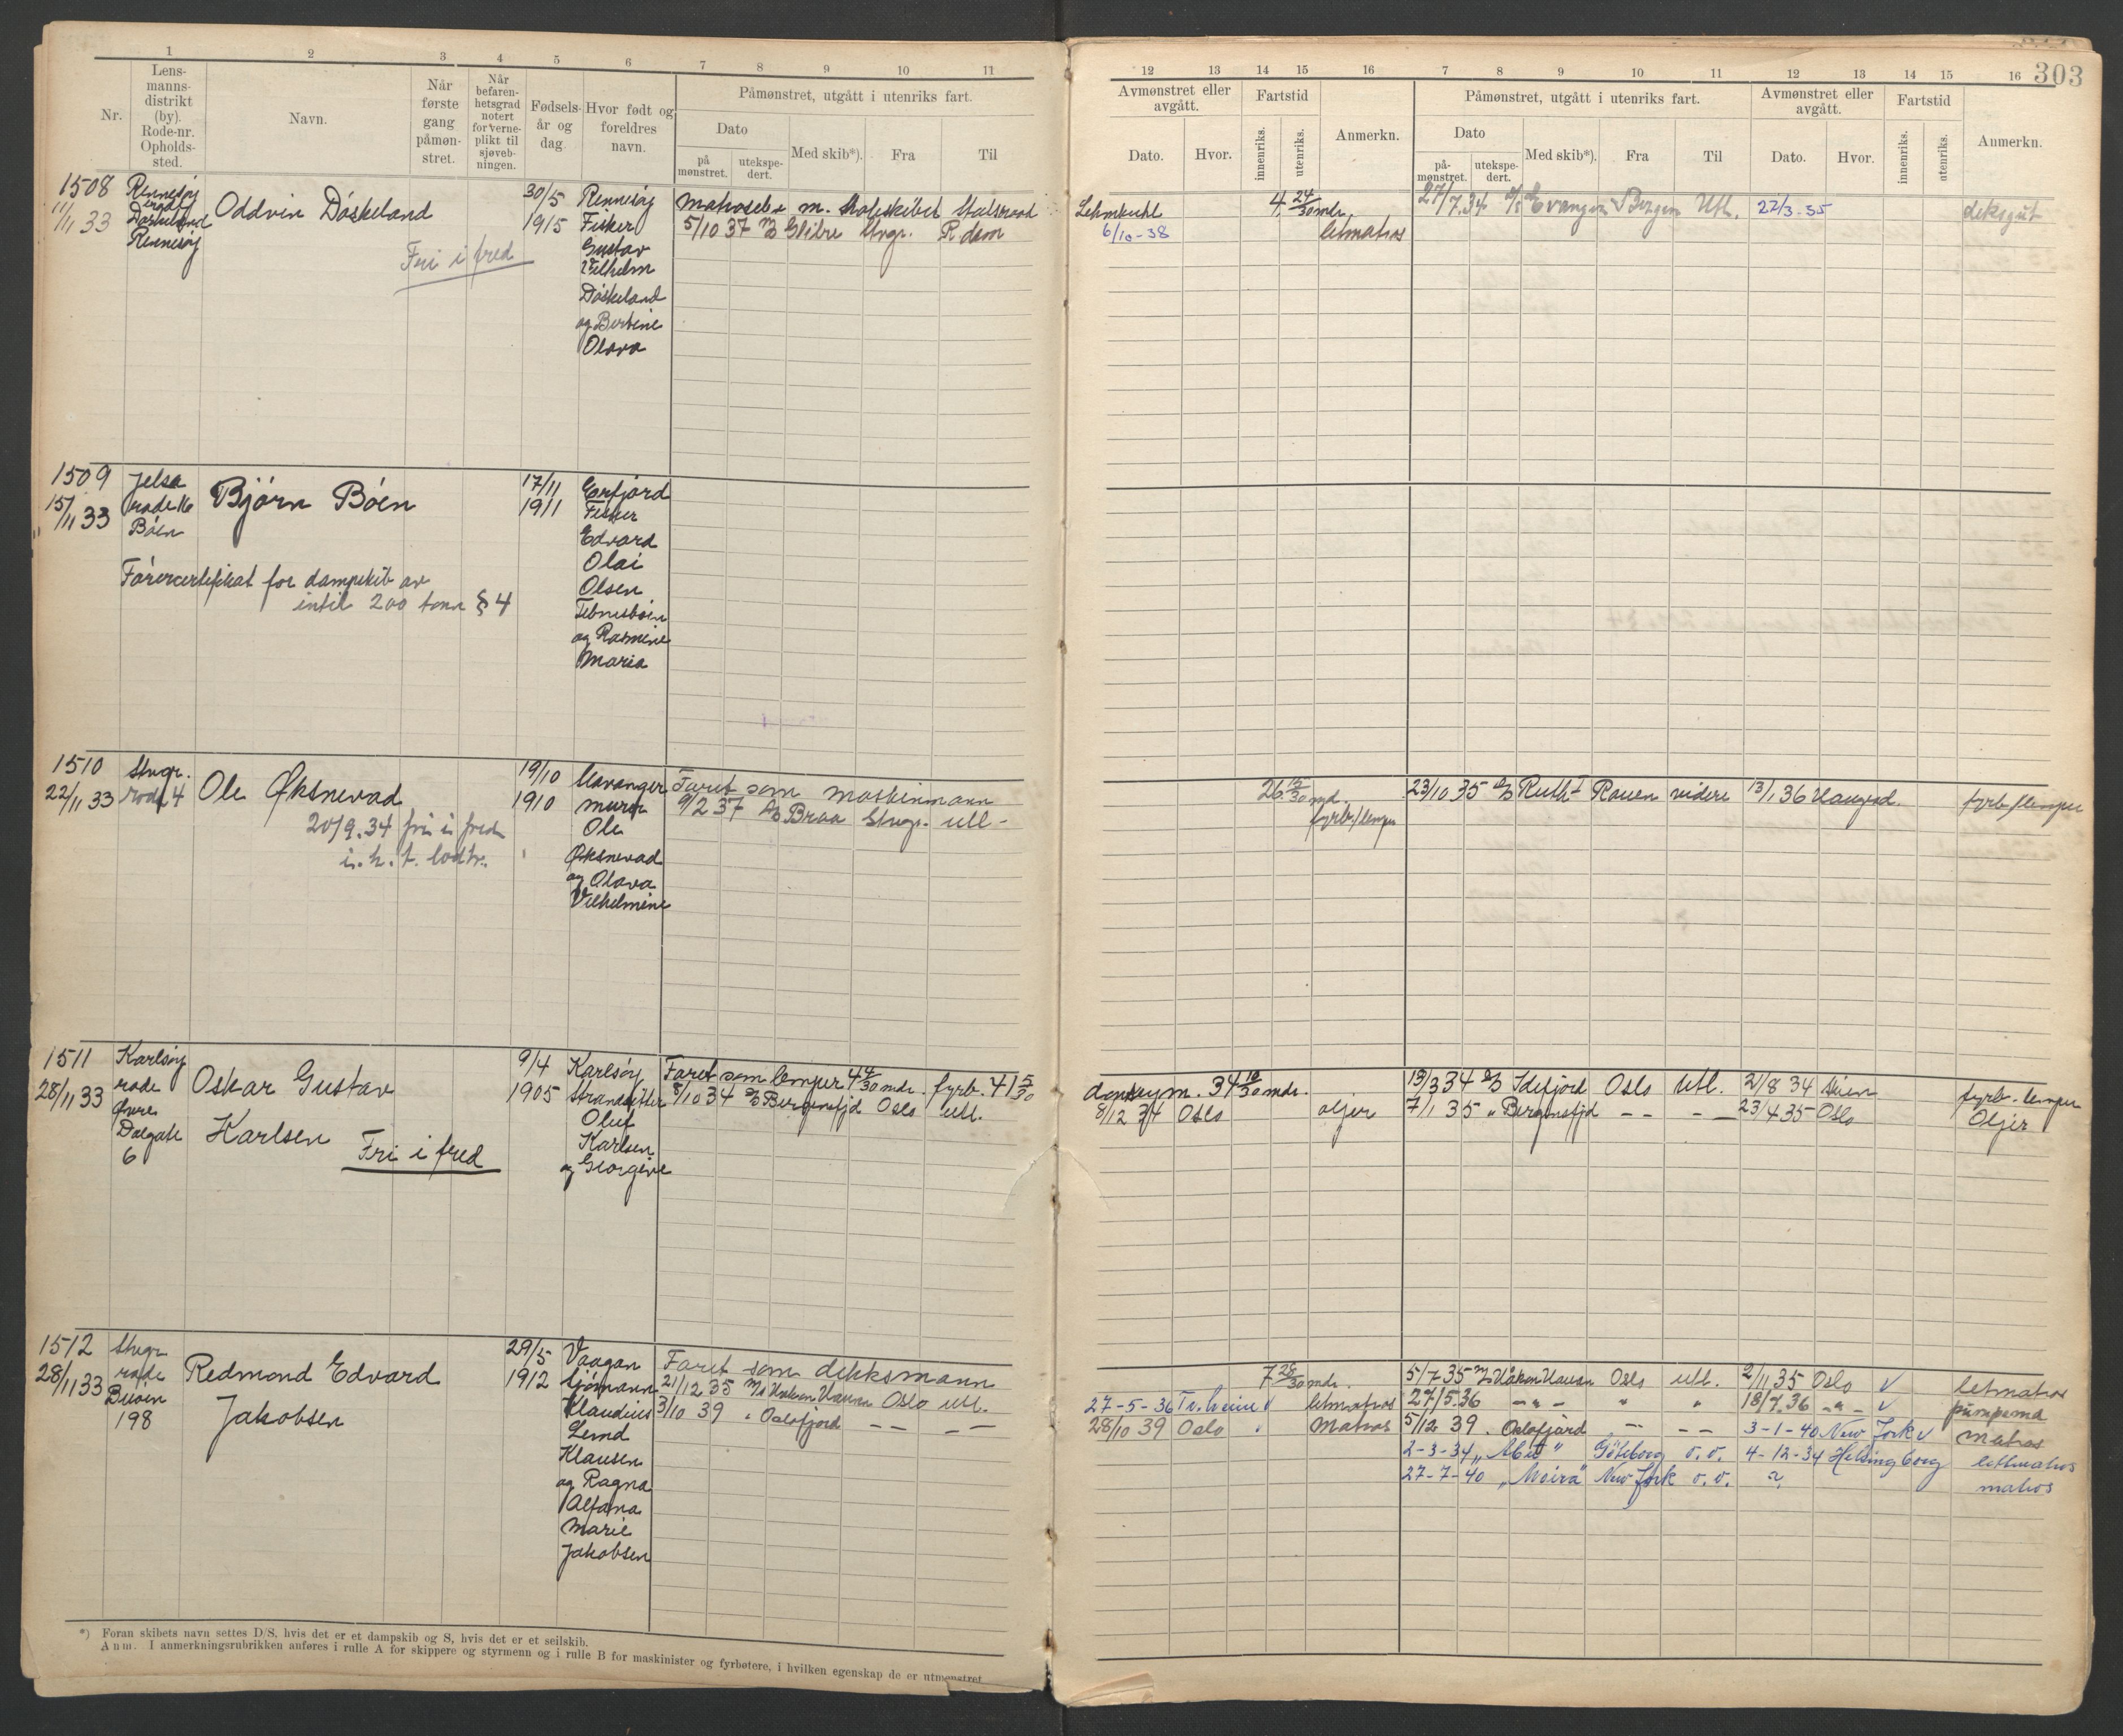 1 2 3 4 5 6 7 8 9 10 11
Nr.
Lens-
manns-
distrikt
(by).
Rode-nr.
Opholds-
sted.
Navn.
Når
første
gang
påmøn-
stret.
Når
befaren-
hetsgrad
notert
for verne-
plikt til
sjøveb-
ningen.
Fødsels-
år og
dag.
Hvor født og
foreldres
navn.
Påmønstret, utgått i utenriks fart.
Dato
på
mønstret.
utekspe-
dert.
Med skib*).
Fra
Til
1508
11/11 33
Rennesøy
Døskeland
Rennesøy
Oddvin Døskeland
Fri i fred
30/5
1915
Rennesøy
Fisker
Gustav
Vilhelm
Døskeland
og Bertine
Olava
5/10 37 M/S Stvgr. R dam
1509
15/11 33
Jelsa
rode 16
Bøen
Bjørn Bøen
Førercertifikat for dampskib av
intil 200 tonn § 4
17/11
1911
Erfjord
Fisker
Edvard
Olai
Olsen
og Rasmine
Maria
1510
22/11 33
Stvgr.
rode 4
Ole Øksnevad
20/9.34 fri i fred
i. h. t. lodtr.
19/10
1910
Stavanger
murer
Ole
Øksnevad
og Olava
Vilhelmine
Faret som maskinmann
9/2 37 D/S Braa Stvgr. utl -
1511
28/11 33
Karlsøy
rode
Øvre
Dalgate
6
Oskar Gustav
Karlsen
Fri i fred
9/4
1905
Karlsøy
Strandsitter
Oluf
Karlsen
og Georgine
Faret som lemper 4 4/30 mdr. fyrb. 41 5/30
8/10 34 D/S Bergensfjd Oslo utl.
1512
28/11 33
Stvgr
rode
Buøen
198
Redmond Edvard
Jakobsen
29/5
1912
Vaagan
Sjømann
Klaudius
Lernd
Klausen
og Ragna
Alfama
Marie
Jakobsen
Faret som dekksmann
21/12 35 M/S Haakon Hauan Oslo utl.
3/10 39 " Oslofjord — —
*) Foran skibets navn settes D/S, hvis det er et dampskib og S, hvis det er et seilskib.
Anm. I anmerkningsrubrikken anføres i rulle A for skippere og styrmenn og i rulle B for maskinister og fyrbøtere, i hvilken egenskap de er utmønstret
303
12 13 14 15 16 7 8 9 10 11 12 13 14 15 16
Avmønstret eller
avgått.
Dato.
Hvor.
Fartstid
innenriks.
utenriks.
Anmerkn.
Påmønstret, utgått i utenriks fart.
Dato
på-
mønstret.
utekspe-
dert.
Med skib*).
Fra
Til
Avmønstret eller
avgått.
Dato.
Hvor.
Fartstid
innenriks.
utenriks.
Anmerkn.
Lehmkuhl 4 24/30 mdr. 27/7.34 D/S Evanger Bergen Utl. 27/3-35 deksgut
6/10-38 letmatros
26 12/30 md. 23/10 35 D/S Ruth I Rouen videre 13/1 36 Haugsd. fyrb/lemper
fyrb/lemper
donkeym. 34 10/30 mdr. 13/3 34 D/S Idefjord Oslo Utl. 21/8 34 Skien fyrb. lemper
8/12 34 Oslo oljer 7/1 35 " Bergensfjd — — — 23/4 35 Oslo Oljer
7 28/30 mdr. 5/7 35 M/S Håkon Hauan Oslo utl. 2/11 35 Oslo v letmatros
27-5-36 letmatros 27/5.36 — " — " " 18/7.36 — " — v pumpema
28/10 39 Oslo Matros 5/12 39 . Oslofjord — — — 3-1-40 New York v matros
2-3-34 Göteborg o. o. 4-12-34 Helsingborg lettmatros
27-7-40 „Moira" New York o. o. ? matros